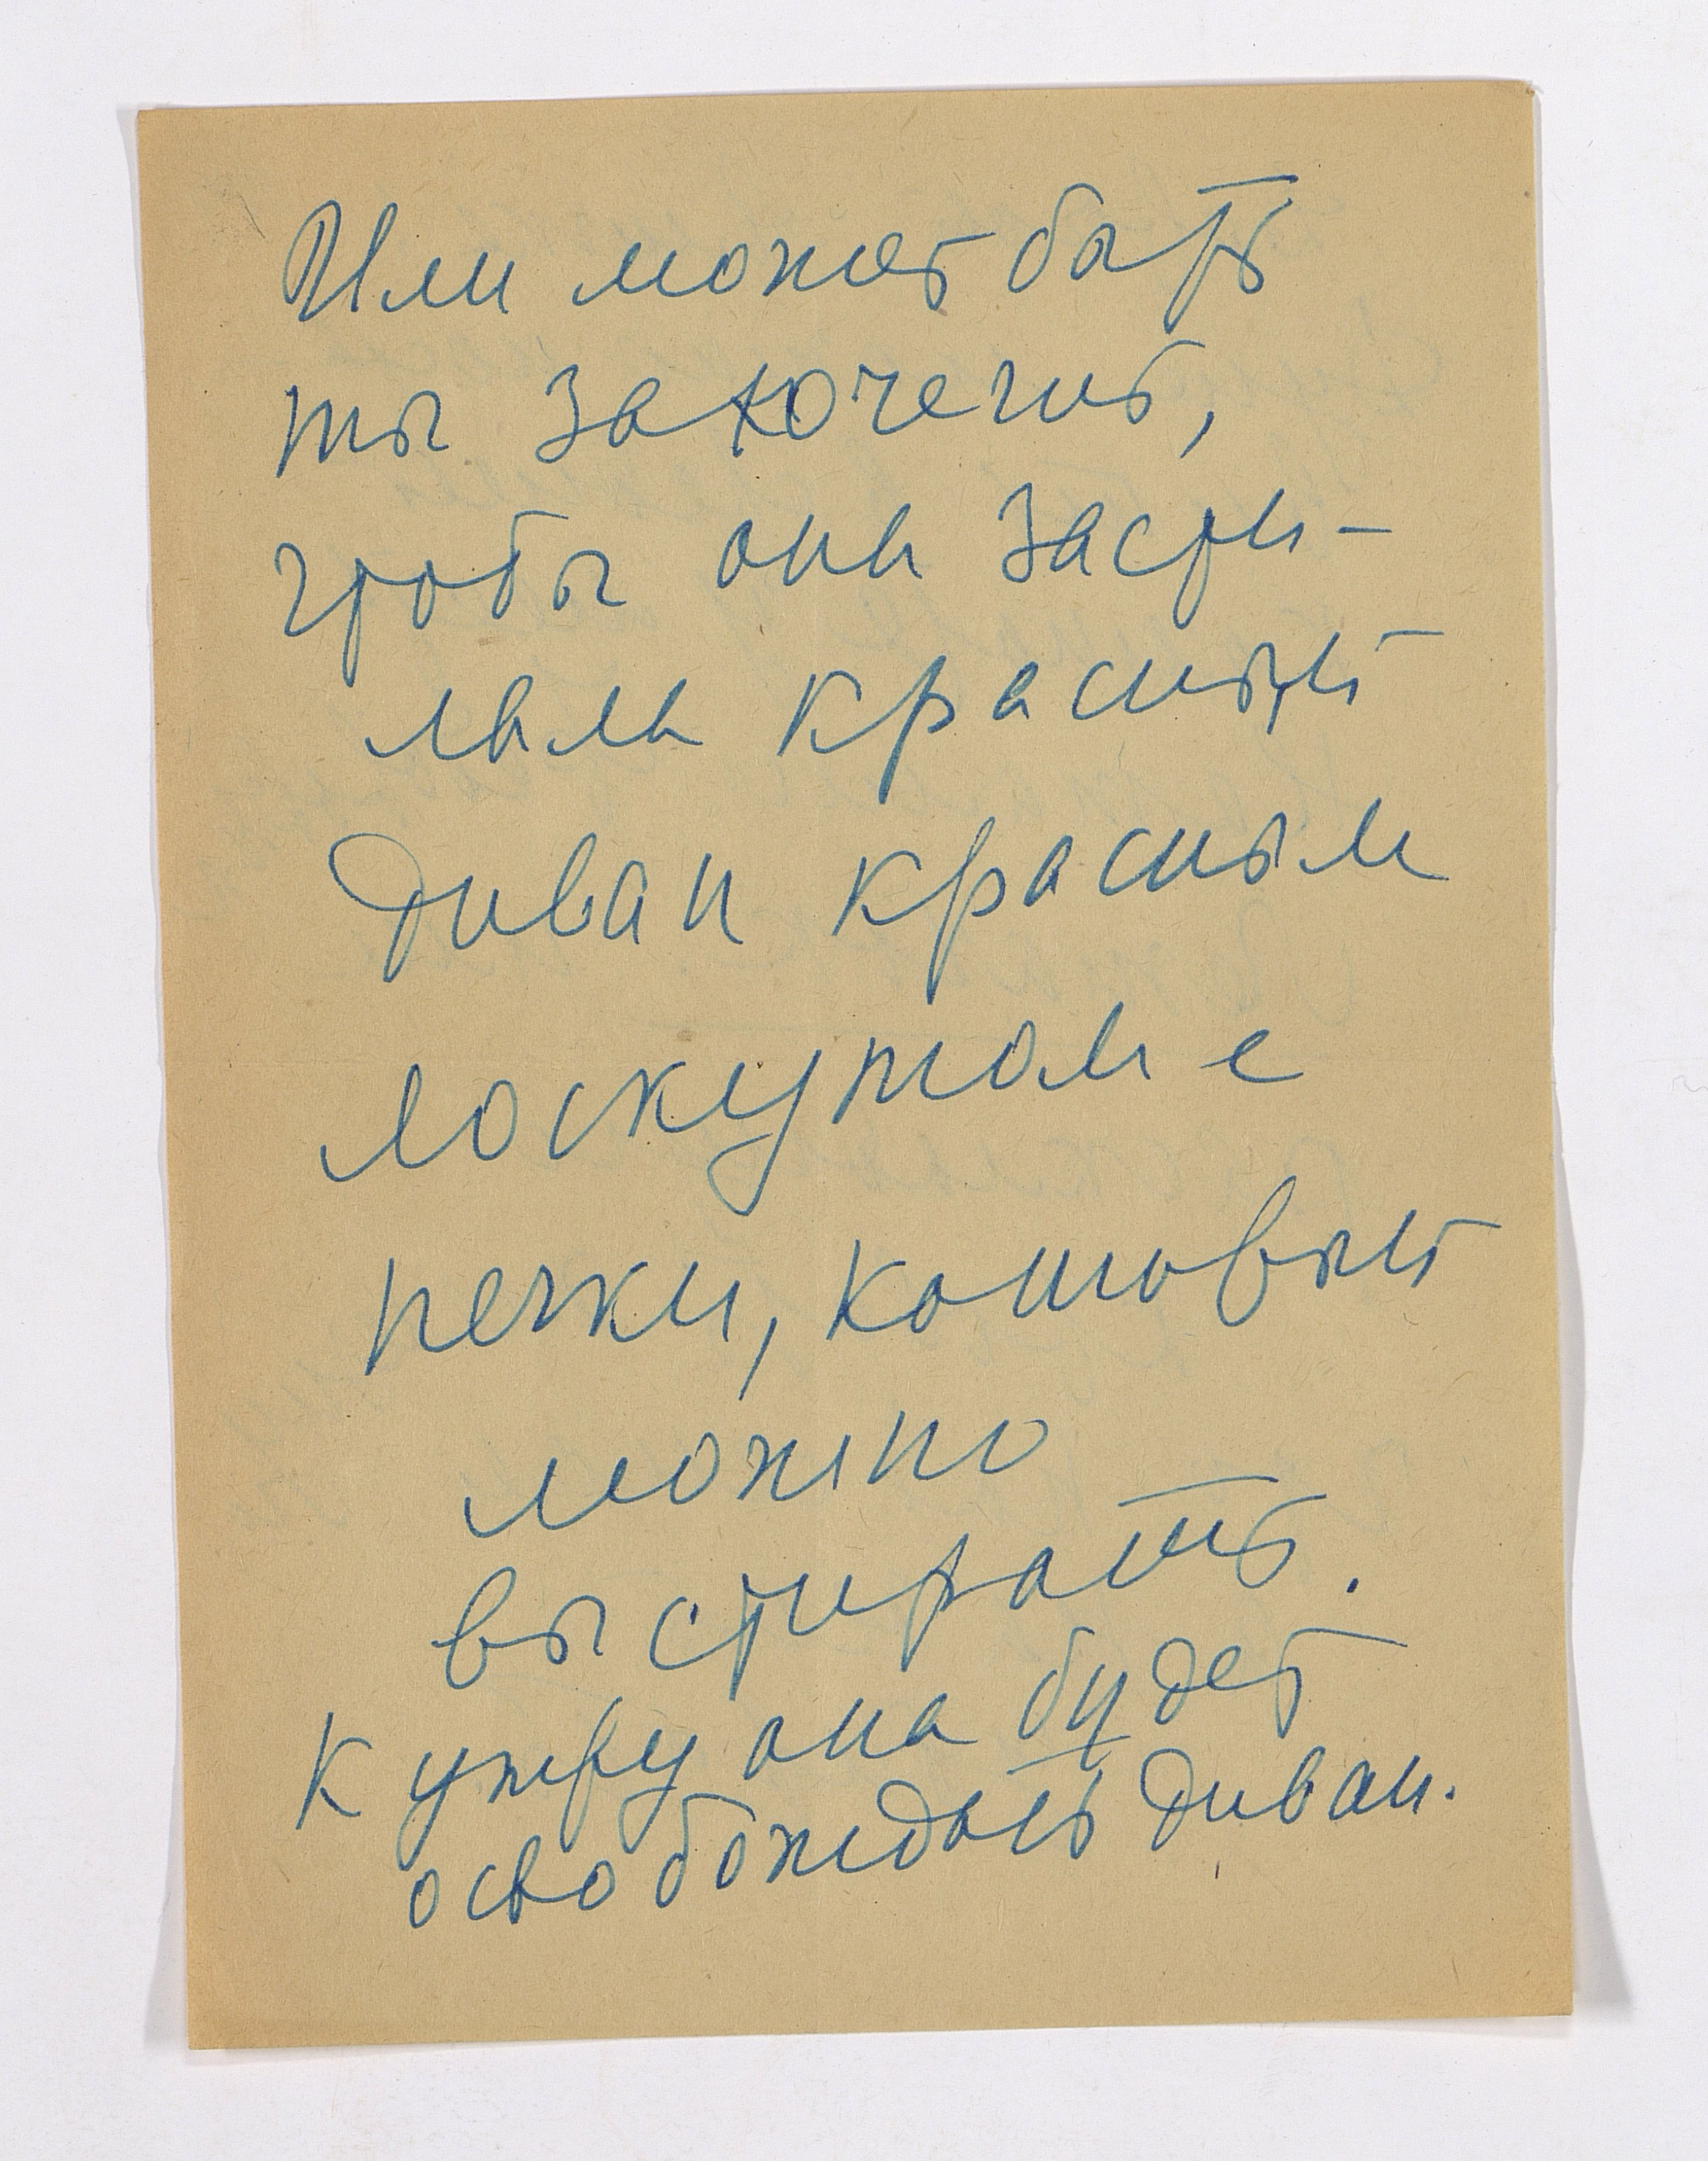 Или может быть
ты захочешь,
чтобы они засти-
лали красный
диван красным
лоскутом с
печки, который
можно
выстирать.
К утру она будет
освобождать диван.